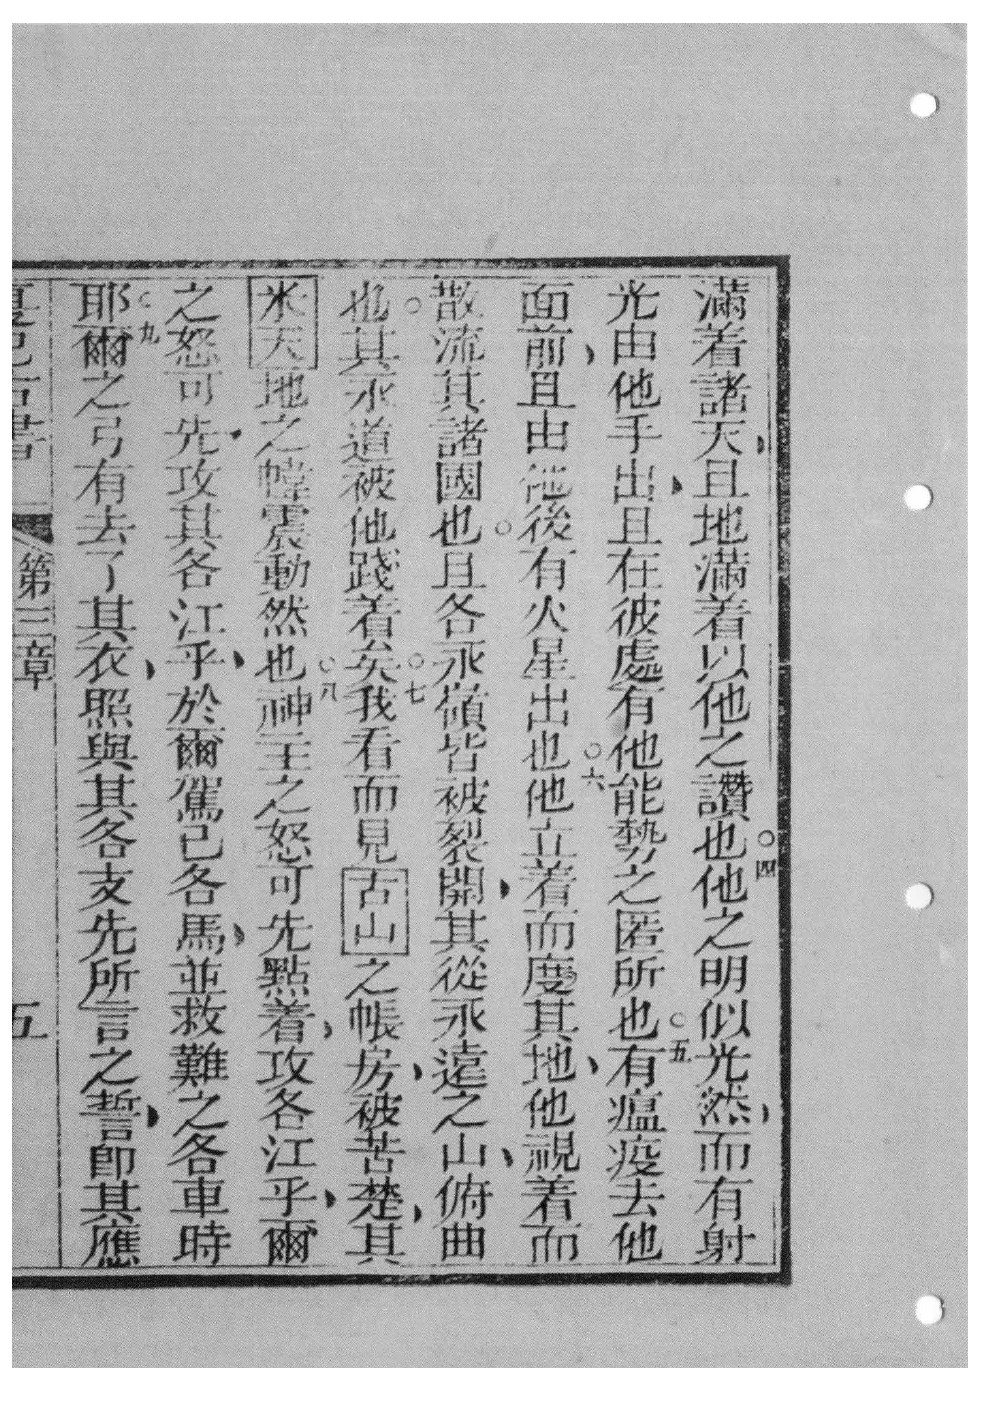 滿着諸天且地滿着以他之讚也○四他之明似光然而有射
光由他手出且在彼處有他能勢之匿所也○五有瘟疫去他
面前且由他後有火星出也○六他立着而度其地他視着而
散流其諸國也○且各永嶺皆被裂開其從永遠之山俯曲
也○其永道被他踐着矣○七我看而見古山之帳房被苦楚其
米天地之幃震動然也○八神主之怒可先點着攻各江乎爾
之怒可先攻其各江乎於爾駕己各馬並救難之各車時
○九耶爾之弓有去了其衣照與其各支先所言之誓即其應
第三章
五